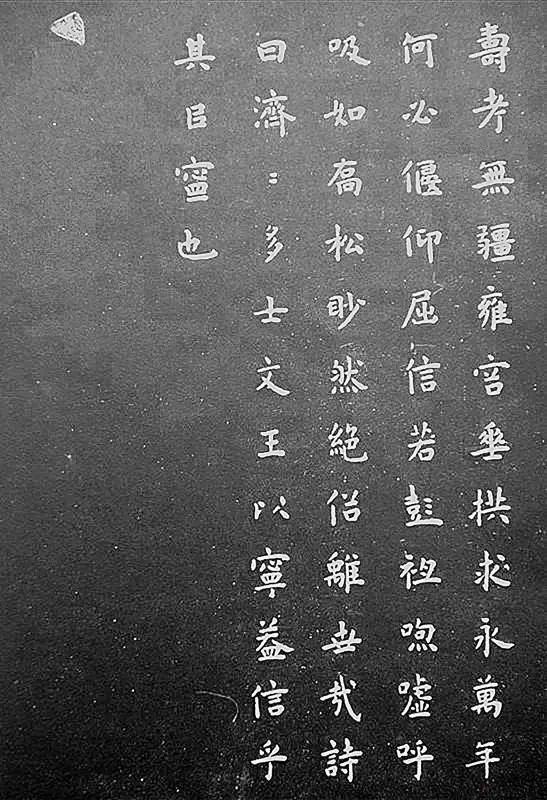 壽考無疆雍容垂拱求永萬年
何必偃仰屈信若彭祖喣嘘呼
吸如喬松眇然絕俗離世哉詩
曰濟〻多士文王以寧葢信乎
其㠯寧也